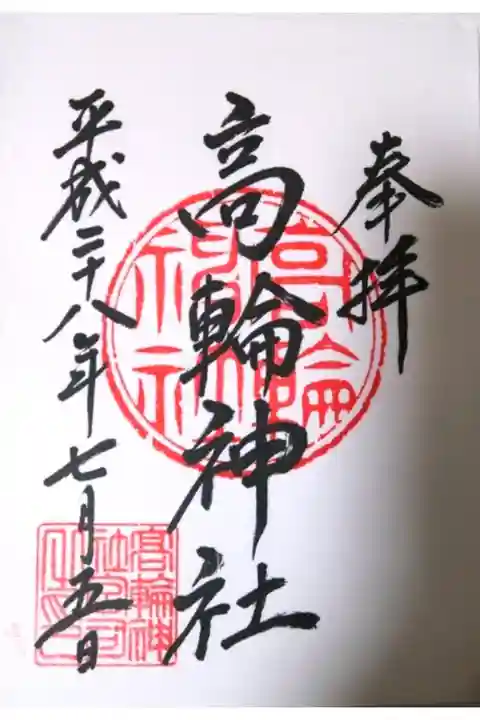 奉拝
高輪神社
平成二十八年七月五日
高輪神社
高輪神
社宮司
之印